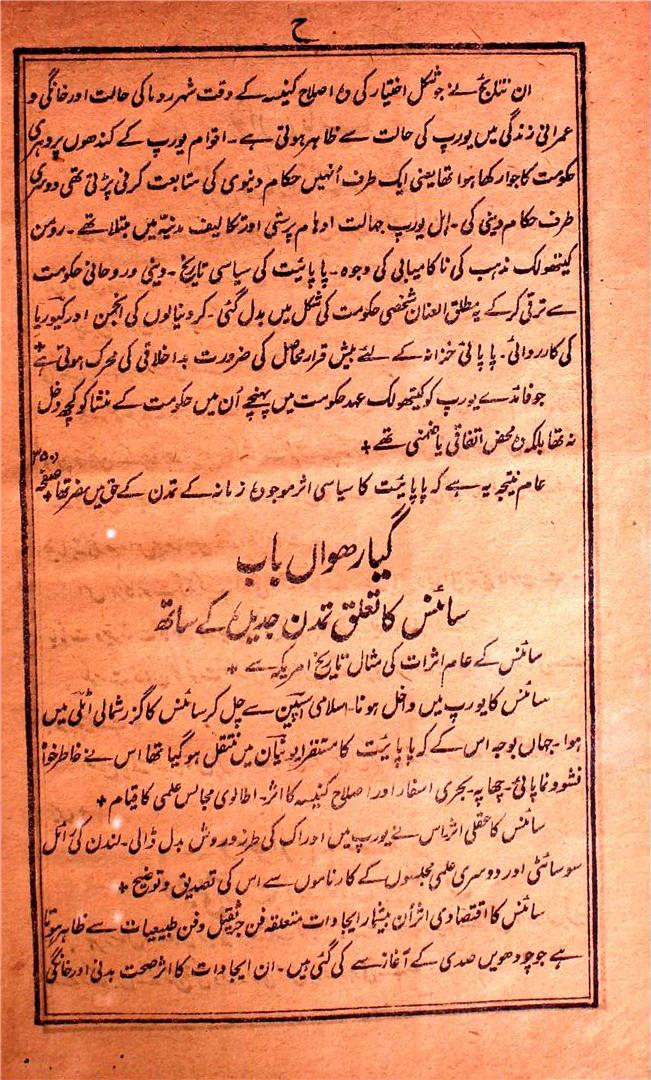 ح
ان نتائج نے جو شکل اختیار کی وہ اصلاح کنیسہ کے وقت شہر روما کی حالت اور خانگی و
عمرانی زندگی میں یورپ کی حالت سے ظاہر ہوتی ہے۔ اقوام یورپ کے کندھوں پر دہری
حکومت کا جوا رکھا ہوا تھا یعنی ایک طرف اُنہیں حکام دنیوی کی متابعت کرنی پڑتی تھی دوسری
طرف حکام دینی کی۔ اہل یورپ جہالت اوہام پرستی اور تکالیف مدنیہ میں مبتلا تھے۔ رومن
کیتھولک مذہب کی ناکامیابی کی وجوہ۔ پاپائیت کی سیاسی تاریخ۔ دینی و روحانی حکومت
سے ترقی کرکے یہ مطلق العنان شخصی حکومت کی شکل میں بدل گئی۔ کردونیالوں کی انجمن اور کیوریا
کی کارروائی۔ پاپائی خزانہ کے لئے بیش قرار محاصل کی ضرورت بد اخلاقی کی محرک ہوتی ہے +
جو فائدے یورپ کو کیتھولک عہد حکومت میں پہنچے اُن میں حکومت کے منشا کو کچھ دخل
نہ تھا بلکہ وہ محض اتفاقی یا ضمنی تھے +
عام نتیجہ یہ ہے کہ پاپائیت کا سیاسی اثر موجودہ زمانہ کے تمدن کے حق میں مضر تھا + صفحہ ۳۵۰
گیارھواں باب
سائنس کا تعلق تمدن جدید کے ساتھ
سائنس کے عام اثرات کی مثال تاریخ امریکہ سے +
سائنس کا یورپ میں داخل ہونا۔ اسلامی اسپین سے چل کر سائنس کا گزر شمالی اٹلی میں
ہوا۔ جہاں بوجہ اس کے کہ پاپائیت کا مستقر ایونیان میں منتقل ہو گیا تھا اس نے خاطر خواہ
نشوونما پائی۔ چھاپہ۔ بحری اسفار اور اصلاح کنیسہ کا اثر۔ اطالوی مجالس علمی کا قیام +
سائنس کا عقلی اثر اس نے یورپ میں ادراک کی طرز و روش بدل ڈالی۔ لندن کی رائل
سوسائٹی اور دوسری علمی مجلسوں کے کارناموں سے اس کی تصدیق و توضیح +
سائنس کا اقتصادی اثر اُن بیشمار ایجادات متعلقہ فن جر ثقیل و فن طبیعیات سے ظاہر ہوتا
ہے جو چودھویں صدی کے آغاز سے کی گئی ہیں۔ ان ایجادات کا اثر صحت بدنی اور خانگی